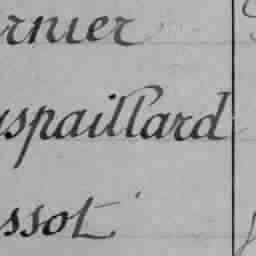 rnier
uspaillard
ssot